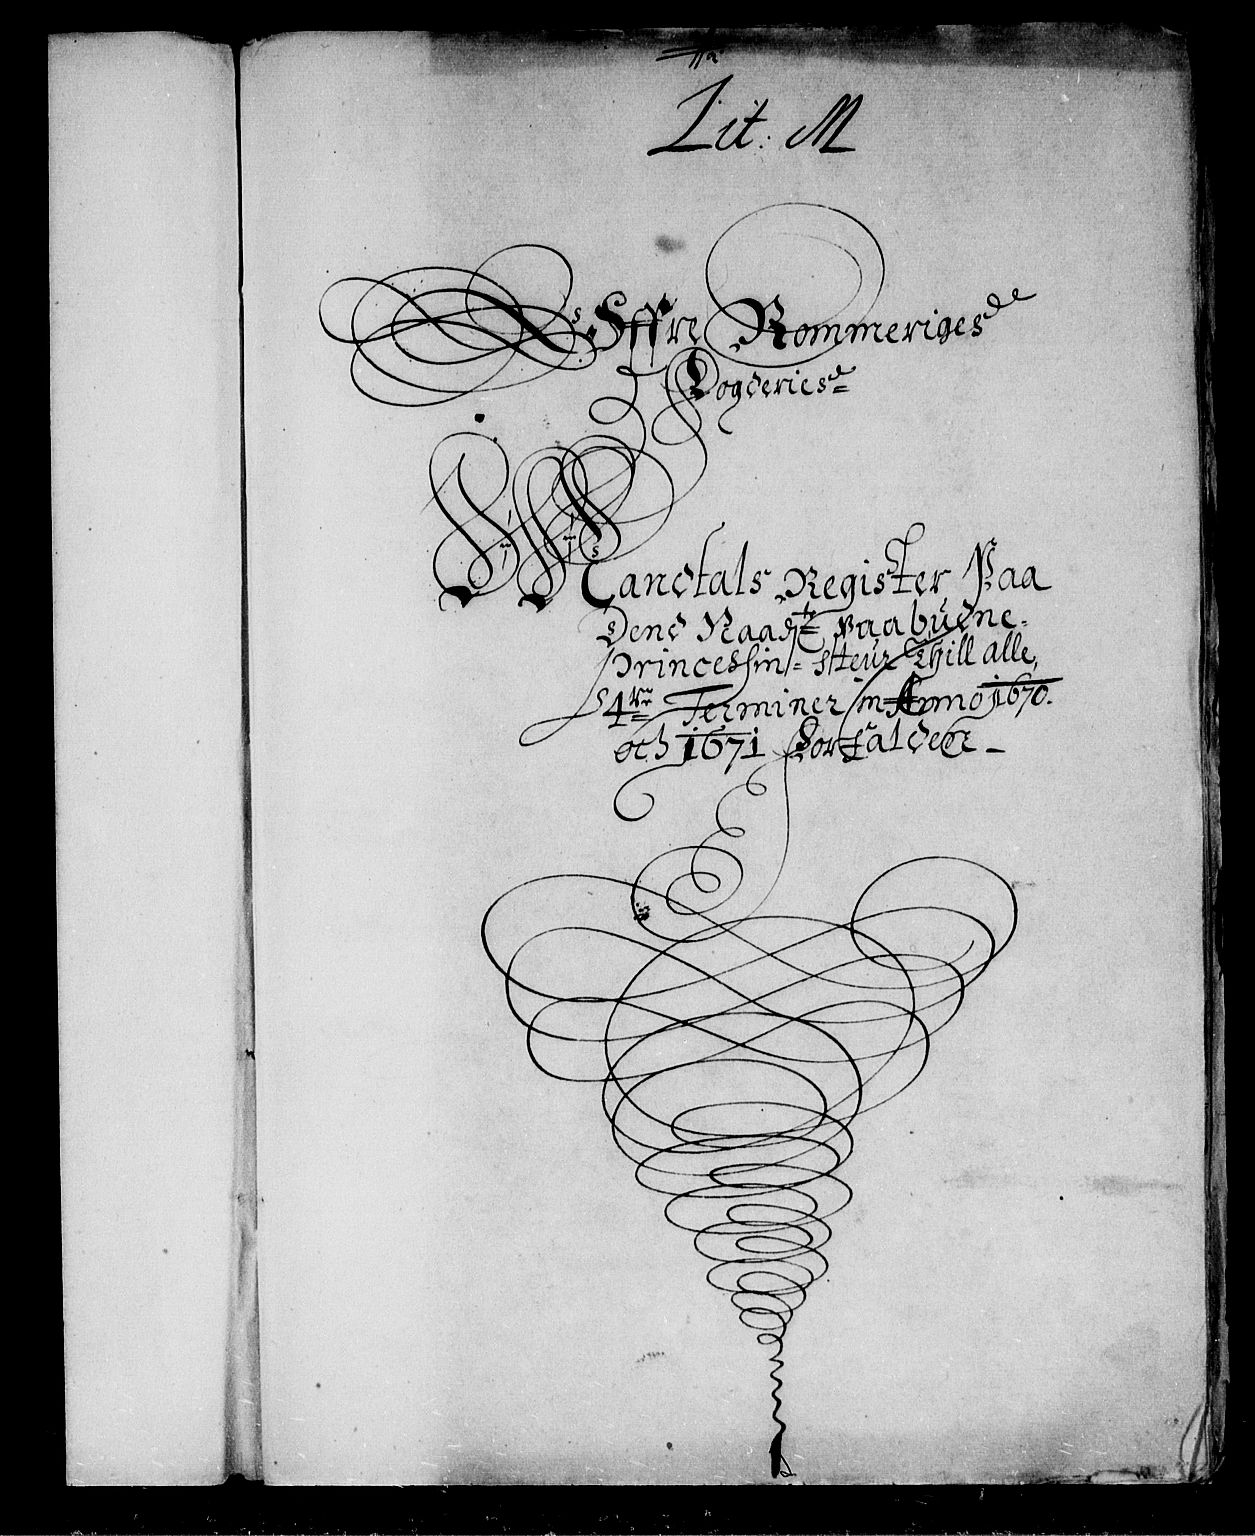 Lit: M
Øffre Rommeriges
Fogderies
Mandtals Register Paa
Dend Naadst Paabudne
Princessin Steur Thill alle
4re Terminer in Anno 1670.
och 1671 Forfalden